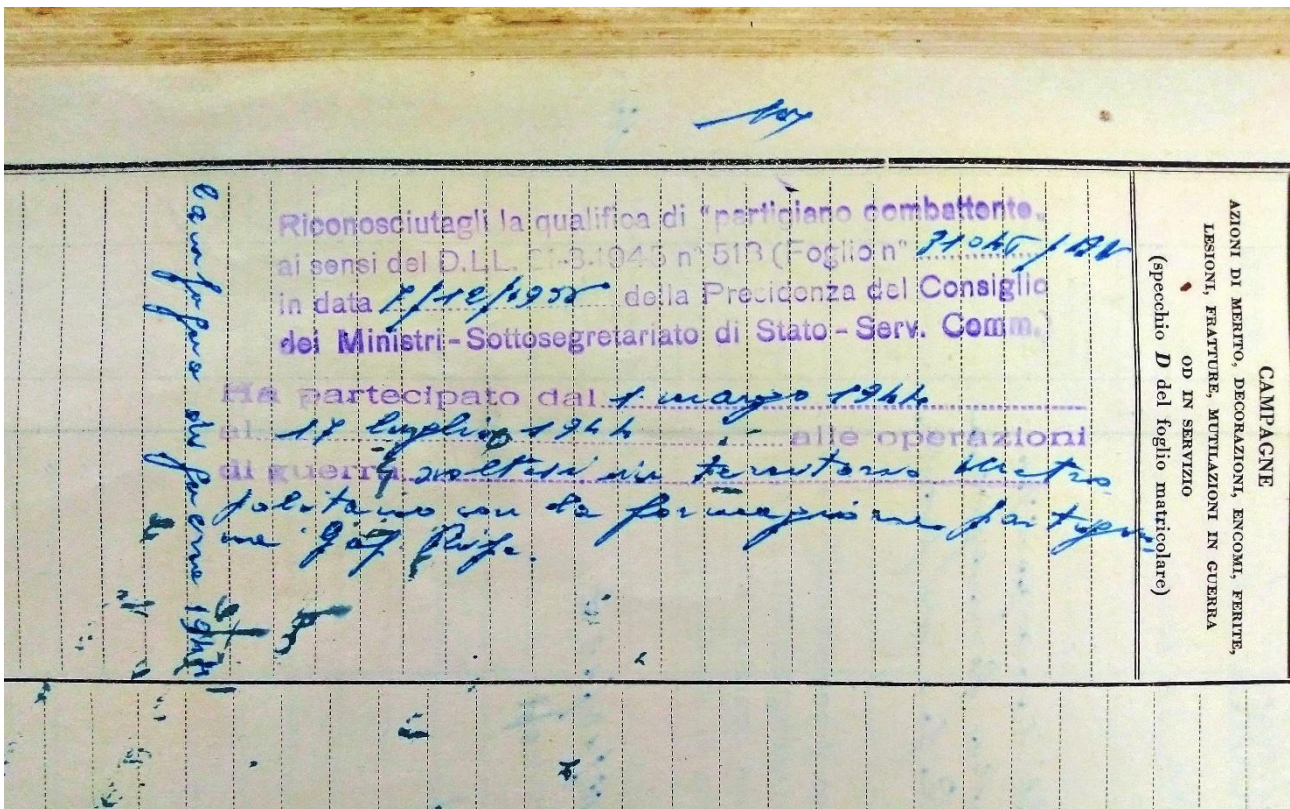 CAMPAGNE
AZIONI DI MERITO, DECORAZIONI, ENCOMI, FERITE,
LESIONI, FRATTURE, MUTILAZIONI IN GUERRA
OD IN SERVIZIO
(specchio D del foglio matricolare)
Riconosciutagli la qualifica di "partigiano combattente,
ai sensi del D.LL. 21-8-1945 n° 518 (Foglio n°
in data 7/12/195 della Presidenza del Consiglio
dei Ministri - Sottosegretariato di Stato - Serv. Comm.)
Ha partecipato dal 1 marzo 1944
al 17 luglio 1944 alle operazioni
di guerra svoltesi in territorio metro
politano con la formazione partigia
na
Campagna di guerra 1944